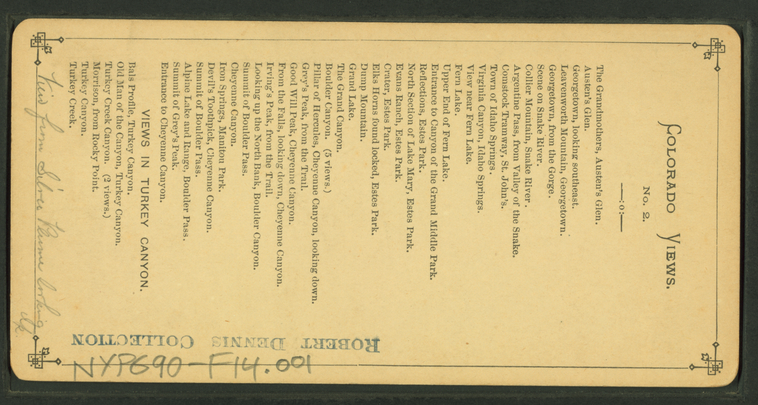 COLORADO VIEWS.
No. 2.
—:o:—
The Grandmothers, Austen's Glen.
Austen's Glen.
Georgetown, looking southeast.
Leavenworth Mountain, Georgetown.
Georgetown, from the Gorge.
Scene on Snake River.
Collier Mountain, Snake River.
Argentine Pass, from Valley of the Snake.
Comstock Tramway, St. John's.
Town of Idaho Springs.
Virginia Canyon, Idaho Springs.
View near Fern Lake.
Fern Lake.
Upper End of Fern Lake.
Entrance to Canyon of the Grand Middle Park.
Reflections, Estes Park.
North Section of Lake Mary, Estes Park.
Evans Ranch, Estes Park.
Crater, Estes Park.
Elks Horns found locked, Estes Park.
Dump Mountain.
Grand Lake.
The Grand Canyon.
Boulder Canyon. (5 views.)
Pillar of Hercules, Cheyenne Canyon, looking down.
Grey's Peak, from the Trail.
Good Will Peak, Cheyenne Canyon.
From the Falls, looking down, Cheyenne Canyon.
Irving's Peak, from the Trail.
Looking up the North Bank, Boulder Canyon.
Summit of Boulder Pass.
Cheyenne Canyon.
Iron Springs, Manitou Park.
Devil's Toothpick, Cheyenne Canyon.
Summit of Boulder Pass.
Alpine Lake and Range, Boulder Pass.
Summit of Grey's Peak.
Entrance to Cheyenne Canyon.
VIEWS IN TURKEY CANYON.
Bals Profile, Turkey Canyon.
Old Man of the Canyon, Turkey Canyon.
Turkey Creek Canyon. (2 views.)
Morrison, from Rocky Point.
Turkey Canyon.
Turkey Creek.
View from Silver Plume looking up
ROBERT DENNIS COLLECTION
NYPG90-F14.001